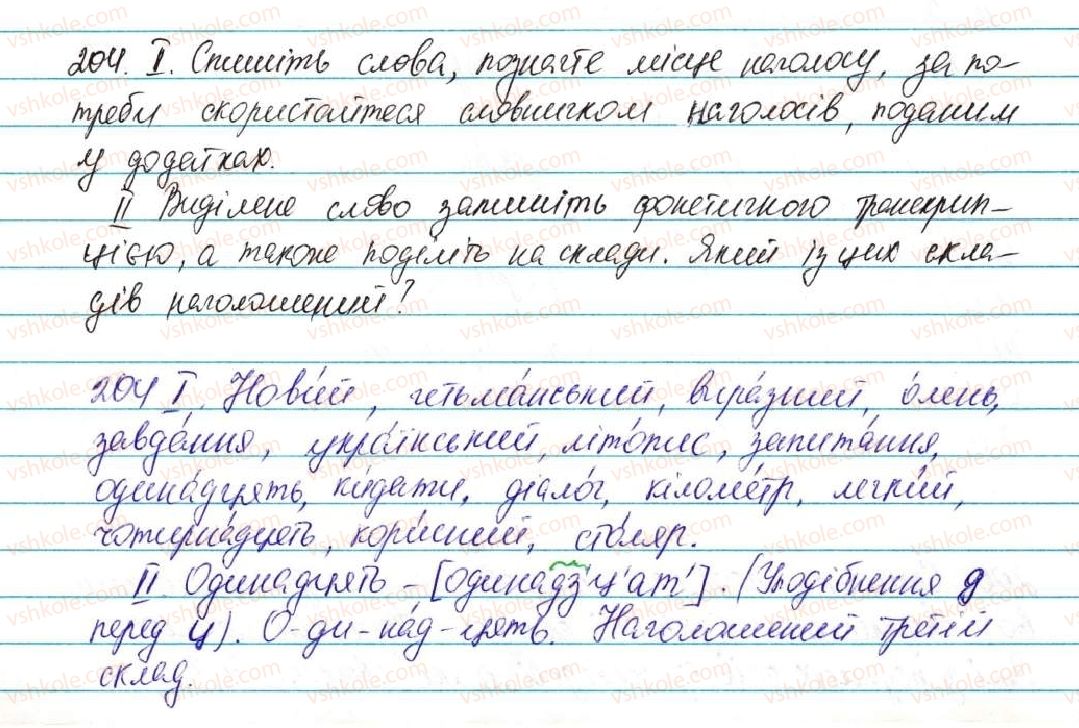 204. I. Спишіть слова, позначте місце наголосу, за по-
треби скористайтеся словничком наголосів, поданим
у додатках.
II Виділене слово запишіть фонетичного транскрип-
цією, а також поділіть на склади. Який із цих скла-
дів наголошений?
204 I. Нови́й, гетьма́нський, вира́зний, о́лень,
завда́ння, украї́нський, літо́пис, запита́ння,
одина́дцять, ки́дати, діало́г, кіломе́тр, легки́й,
чотирна́дцять, кори́сний, сто́ляр.
II. Одинадцять – [одинадз'ц'ат']. (Уподібнення д
перед ц). О-ди-на́д-цять. Наголошений третій
склад.